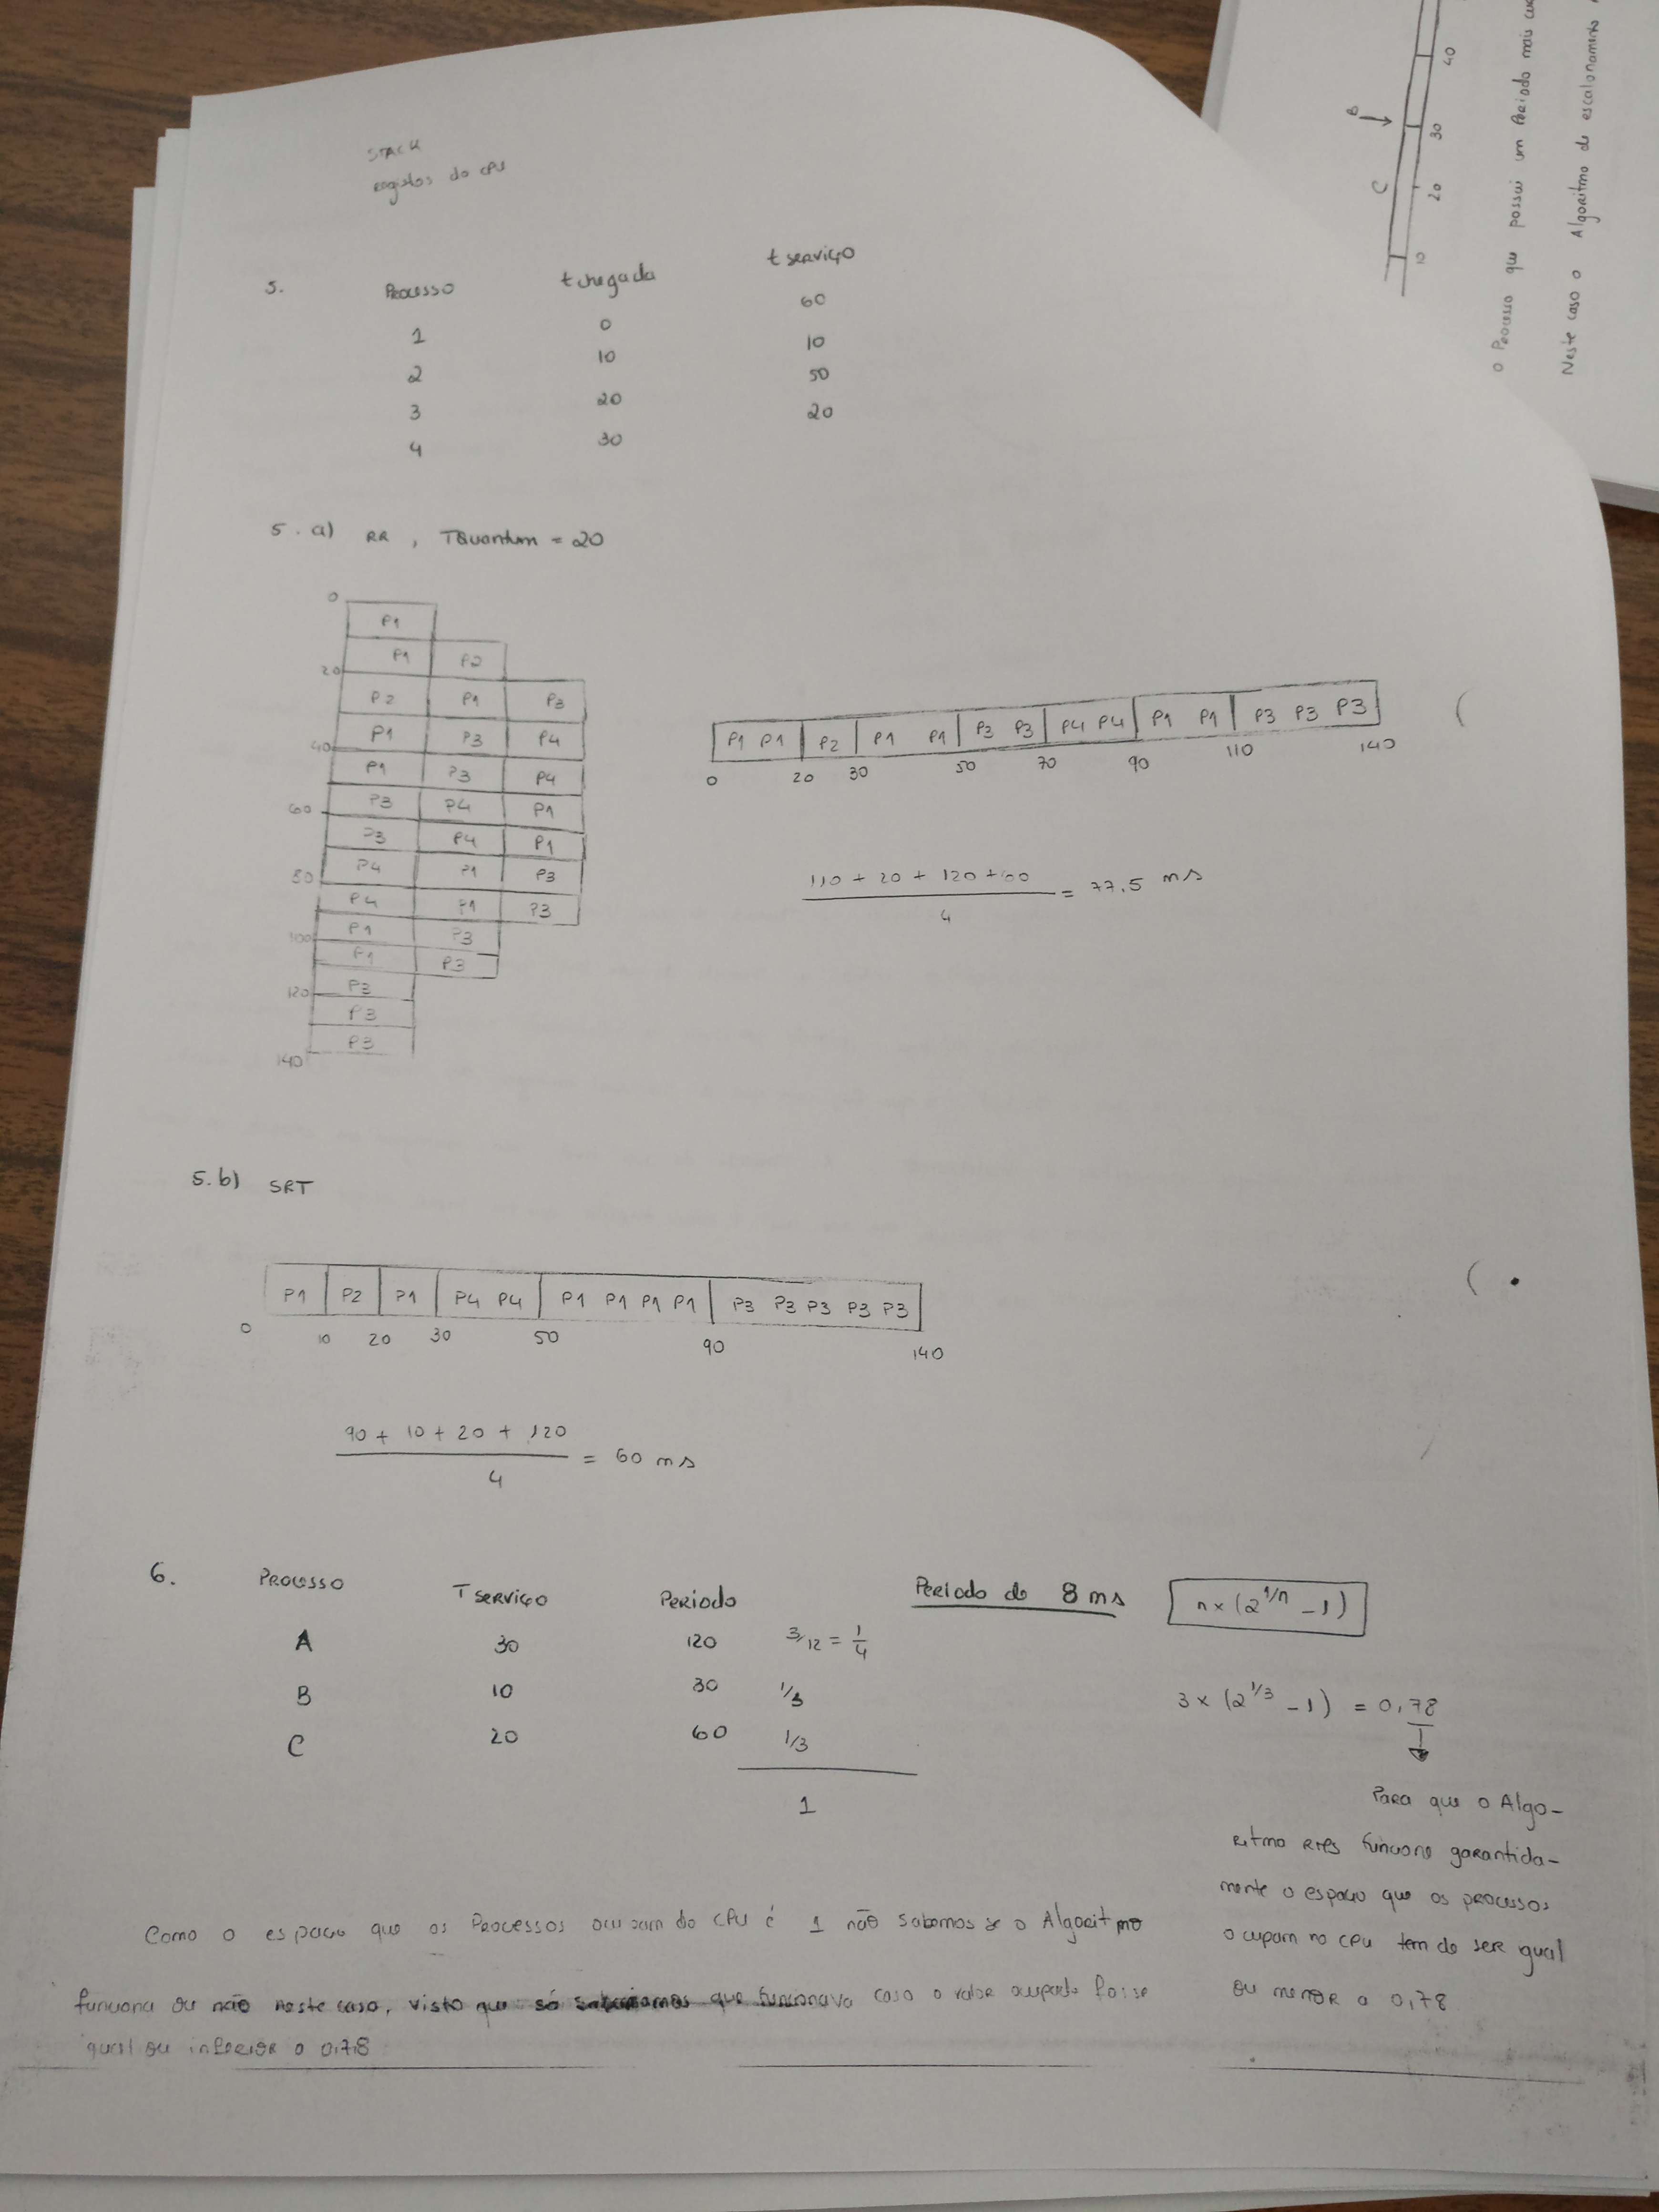 STACK
registos do CPU
5. Processo t chegada t serviço
1 0 60
2 10 10
3 20 50
4 30 20
5. a) RR, TQuantum = 20
0
P1
P1 P2
20
P2 P1 P3
P1 P3 P4
40
P1 P3 P4
P3 P4 P1
60
P3 P4 P1
P4 P1 P3
80
P4 P1 P3
P1 P3
100
P1 P3
P3
120
P3
P3
140
P1 P1 P2 P1 P1 P3 P3 P4 P4 P1 P1 P3 P3 P3
0 20 30 50 70 90 110 140
110 + 20 + 120 + 60 = 77.5 ms
4
5. b) SRT
P1 P2 P1 P4 P4 P1 P1 P1 P1 P3 P3 P3 P3 P3
0 10 20 30 50 90 140
90 + 10 + 20 + 120 = 60 ms
4
6. Processo T serviço Periodo
A 30 120 3/12 = 1/4
B 10 30 1/3
C 20 60 1/3
1
Periodo de 8 ms
n x (2^1/n - 1)
3 x (2^1/3 - 1) = 0,78
Para que o Algo-
ritmo funciona garantida-
mente o espaço que os processos
ocupam no CPU tem de ser igual
ou menor a 0,78
Como o espaço que os Processos ocupam do CPU é 1 não sabemos se o Algoritmo
funciona ou não neste caso, visto que só saberiamos que funcionava caso o valor ocupado fosse
igual ou inferior a 0,78
10 20 30 40
C
B
o Processo que possui um Periodo mais
Neste caso o Algoritmo de escalonamento